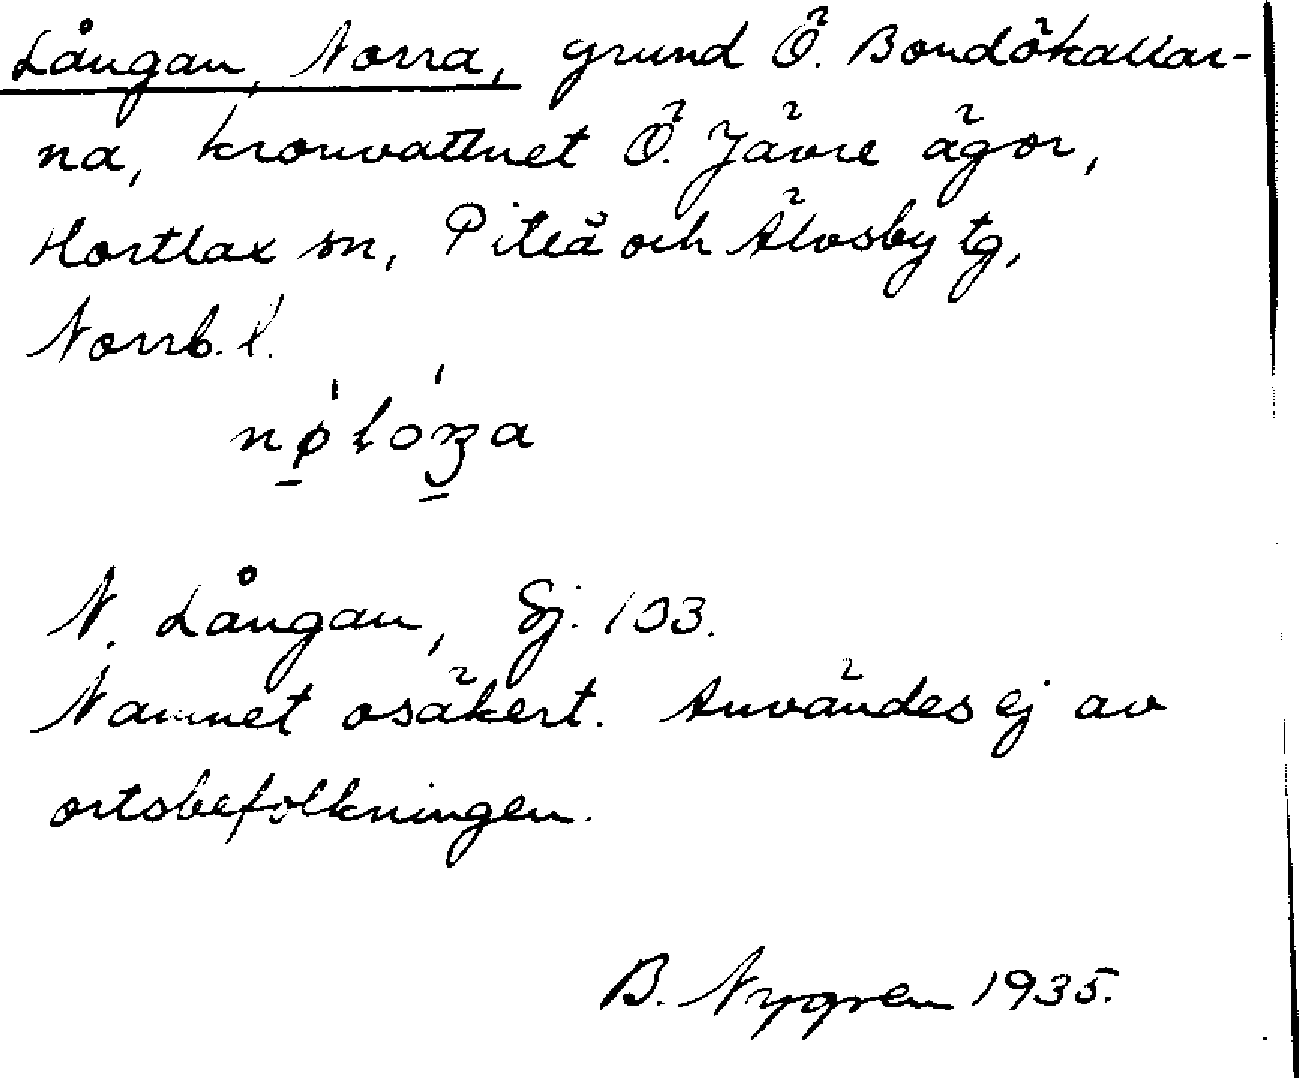 Långan, Norra, grund Ö. Bondökallar-
na, kronvattnet Ö. Jävre ägor,
Hortlax sn, Piteå och Älvsby tg,
Norrb. l.
N. Långan, Sj. 133.
Namnet osäkert. Användes ej av
ortsbefolkningen.
B. Nygren 1935.